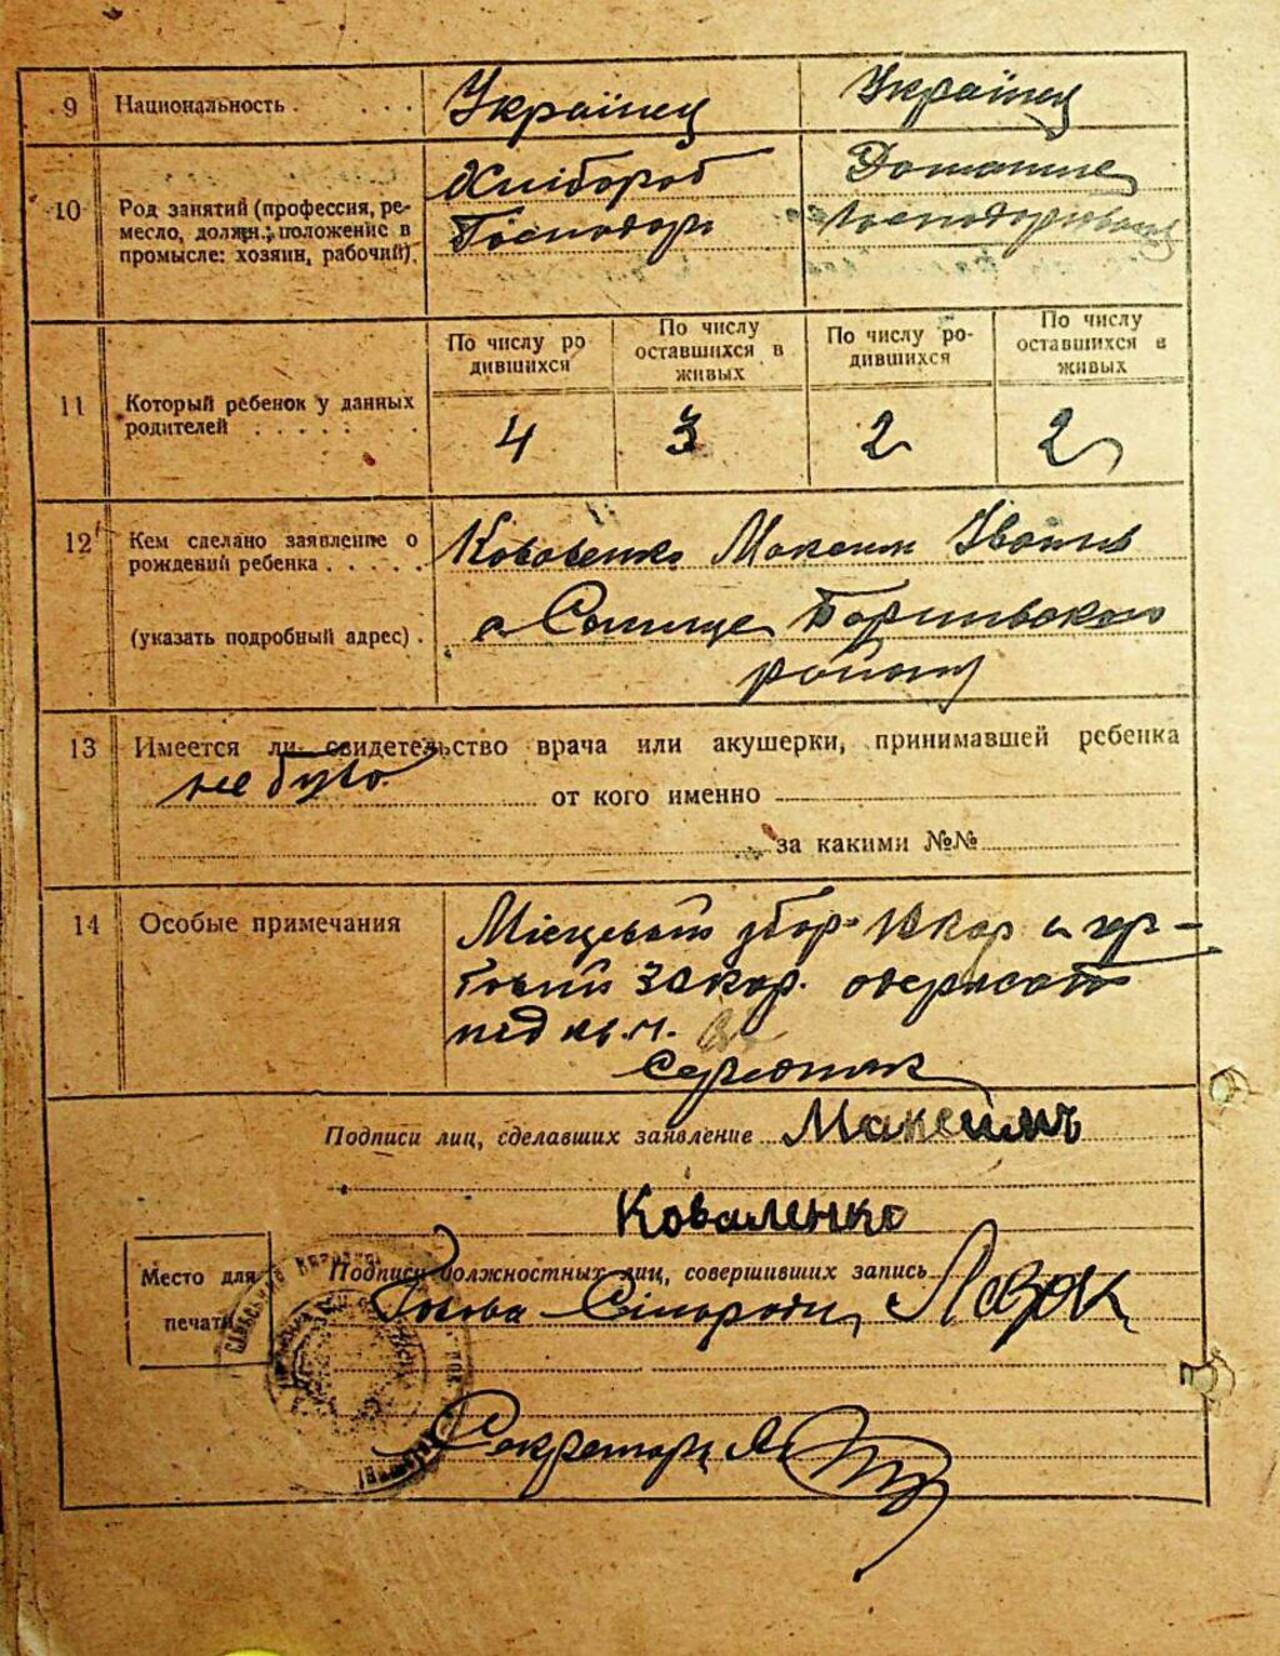 9 Национальность . . . . Українец Українец
10 Род занятий (профессия, ремесло, должн.; положение в промысле: хозяин, рабочий).
Хлібороб Домашнє
Господарь
11 Который ребенок у данных родителей . . . . . .
По числу родившихся По числу оставшихся в живых По числу родившихся По числу оставшихся в живых
4 3 2 2
12 Кем сделано заявление о рождении ребенка . . . . .
Максим
(указать подробный адрес) .
району
13 Имеется ли свидетельство врача или акушерки, принимавшей ребенка
не було от кого именно
за какими №№
14 Особые примечания
Місцевый збор
одержать
Середняк
Подписи лиц, сделавших заявление Максимъ
Коваленко
Место для печати
Подписи должностных лиц, совершивших запись
Голова Сільради
Секретарь